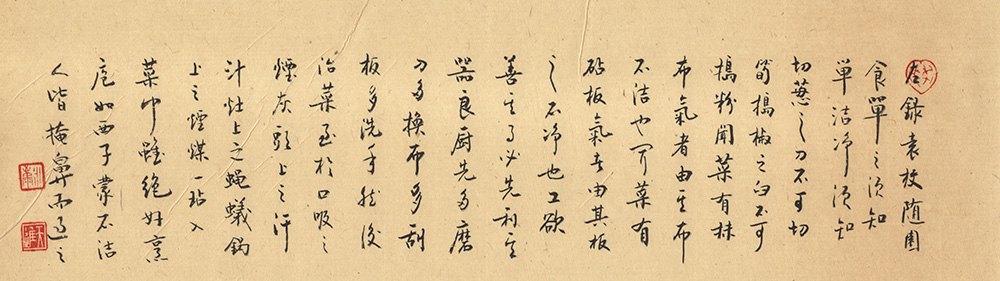 左録袁枚随園
食單之須知
単 洁净須知
切葱之刀不可切
筍搗椒之臼不可
搗粉聞菜有抹
布氣者由其布
不洁也聞菜有
砧板氣者由其板
之不净也工欲
善其事必先利其
器良厨先多磨
刀多换布多刮
板多洗手然後
治菜至於口吸之
煙灰頭上之汗
汁灶上之蝇蟻鍋
上之煙煤一玷入
菜中雖绝好烹
庖如西子蒙不洁
人皆掩鼻而過之